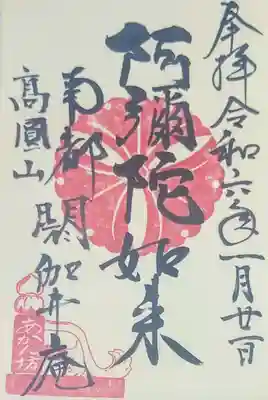 奉拝 令和六年一月廿一日
阿彌陀如来
南都 閼伽井庵
高圓山
あか坊